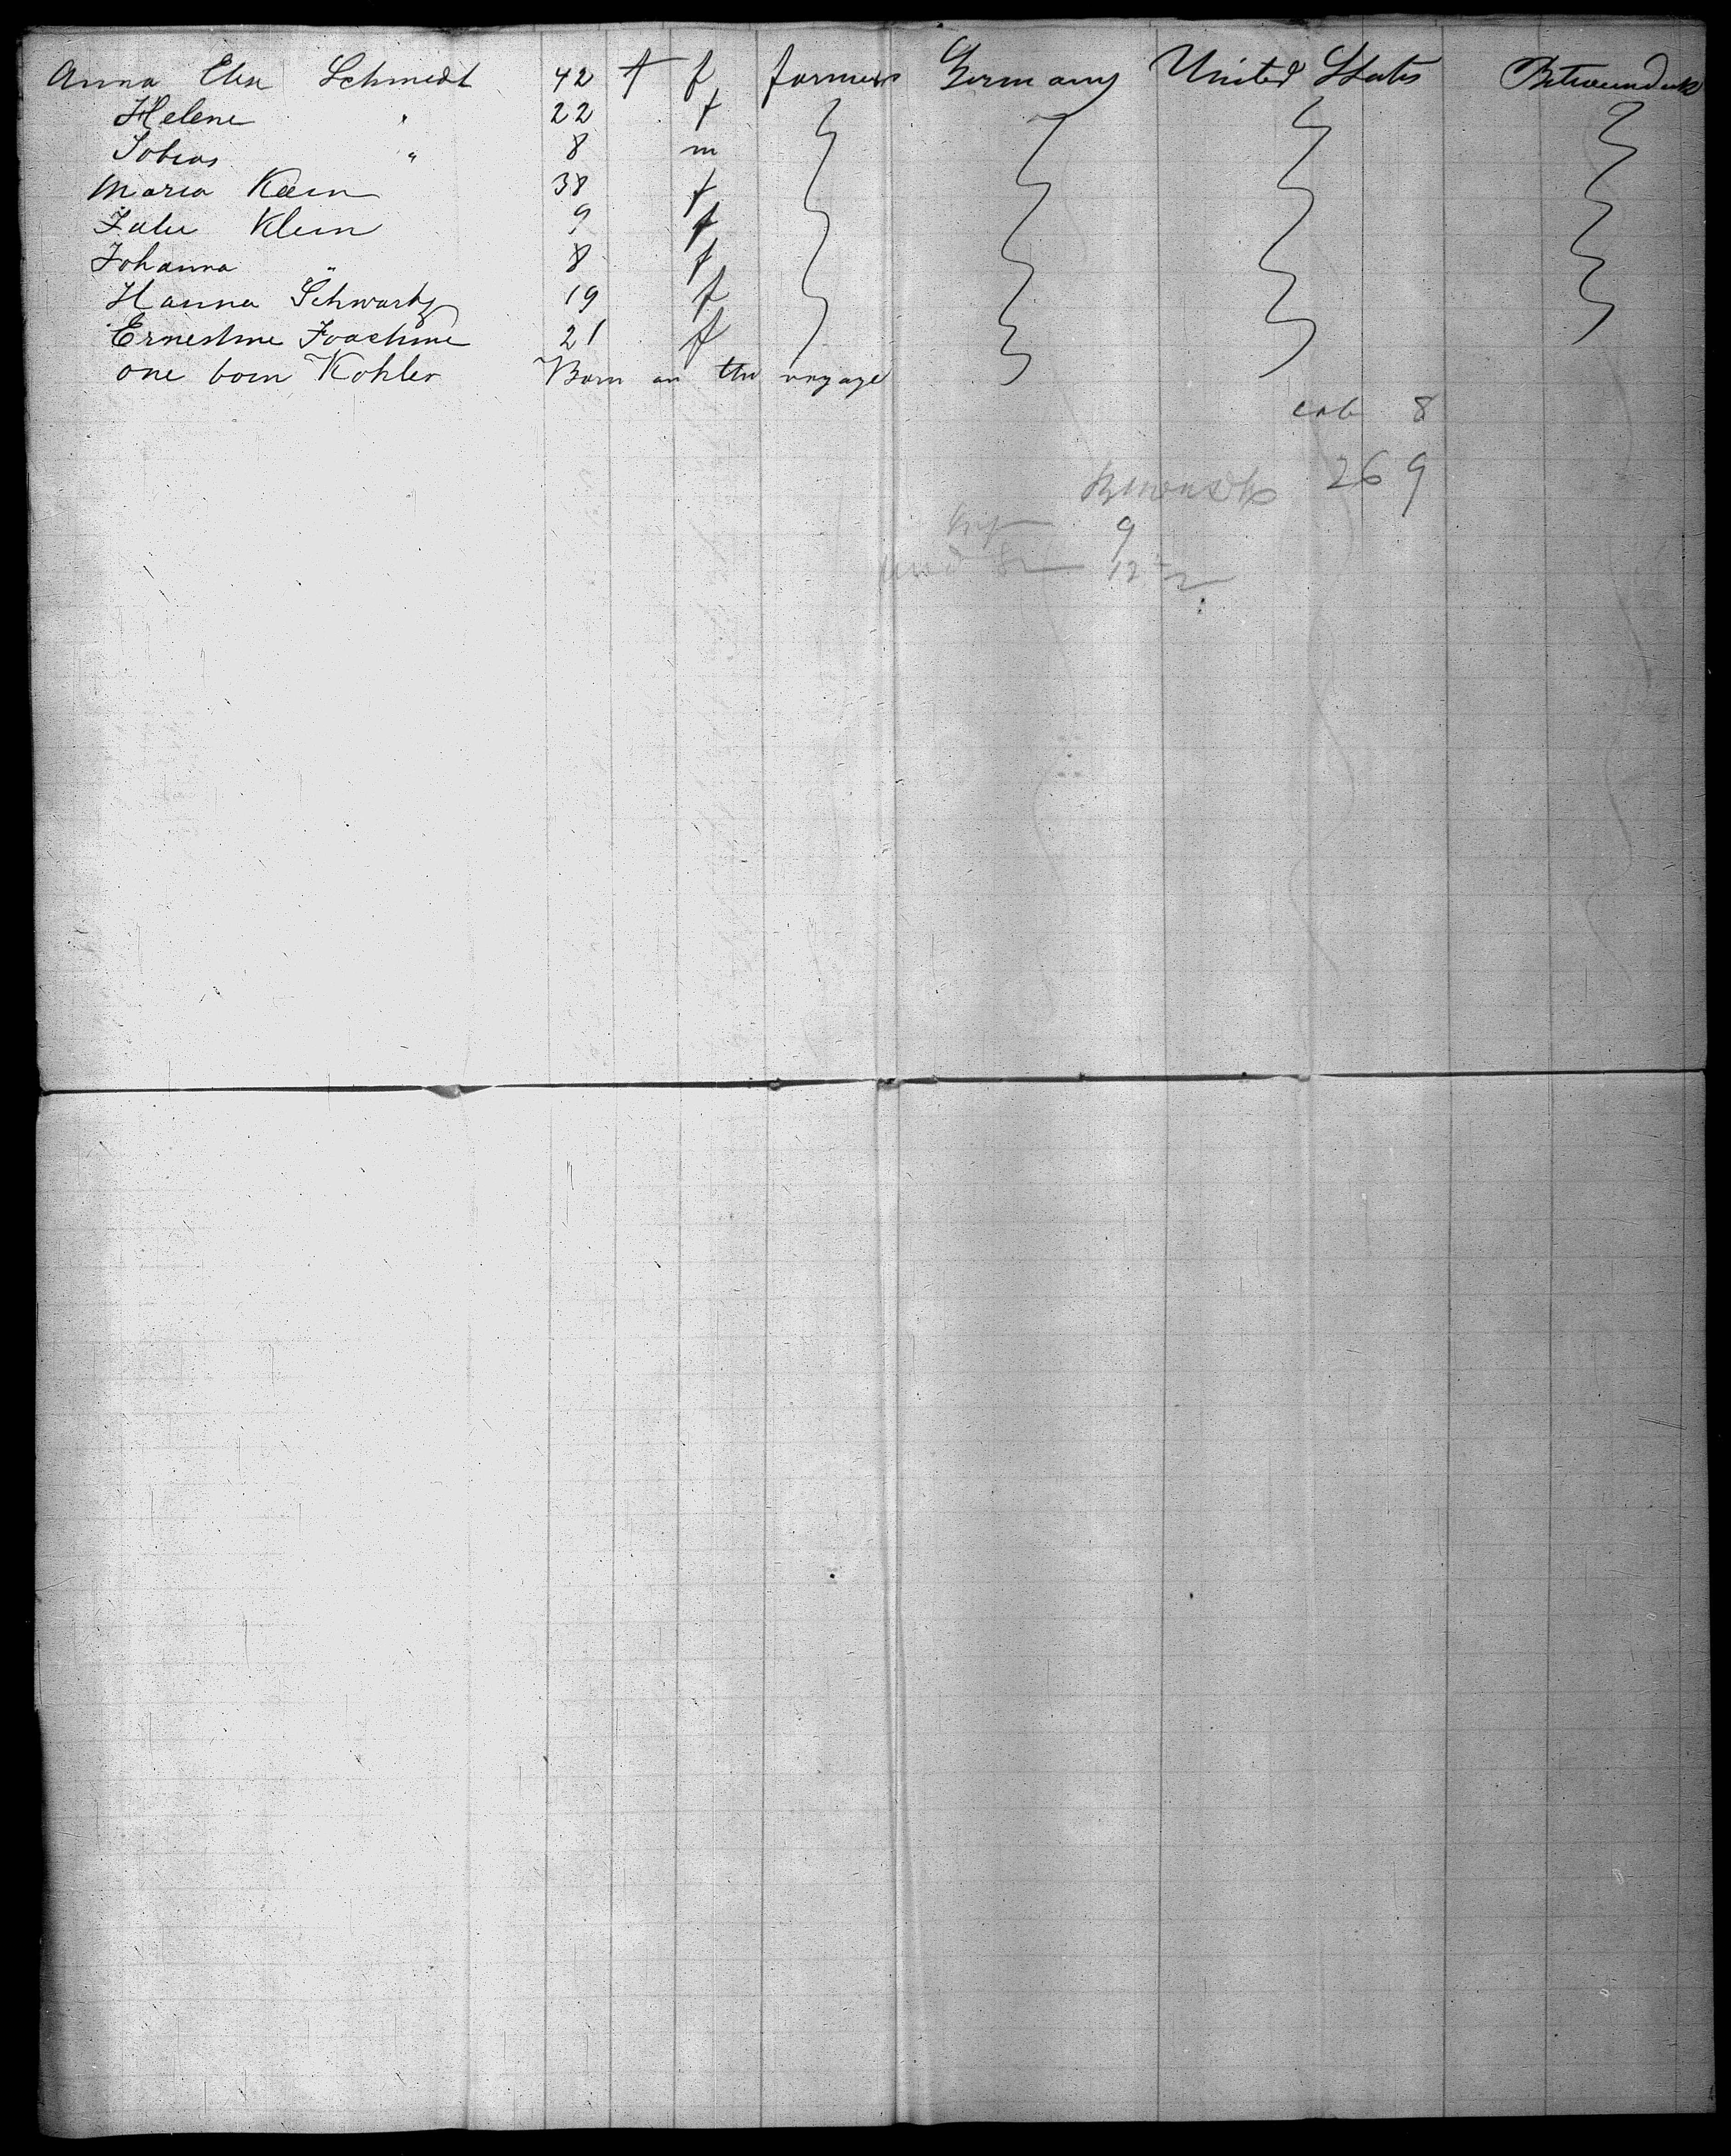 Anna Elise Schmidt 42 f f farmers Germany United States Between deck
Helene " 22 f
Tobias " 8 m
Maria Klein 38 f
Julie Klein 9 f
Johanna " 8 f
Hanna Schwartz 19 f
Ernestine Joachime 21 f
one born Kohler Born on the voyage
cab 8
269
9
12